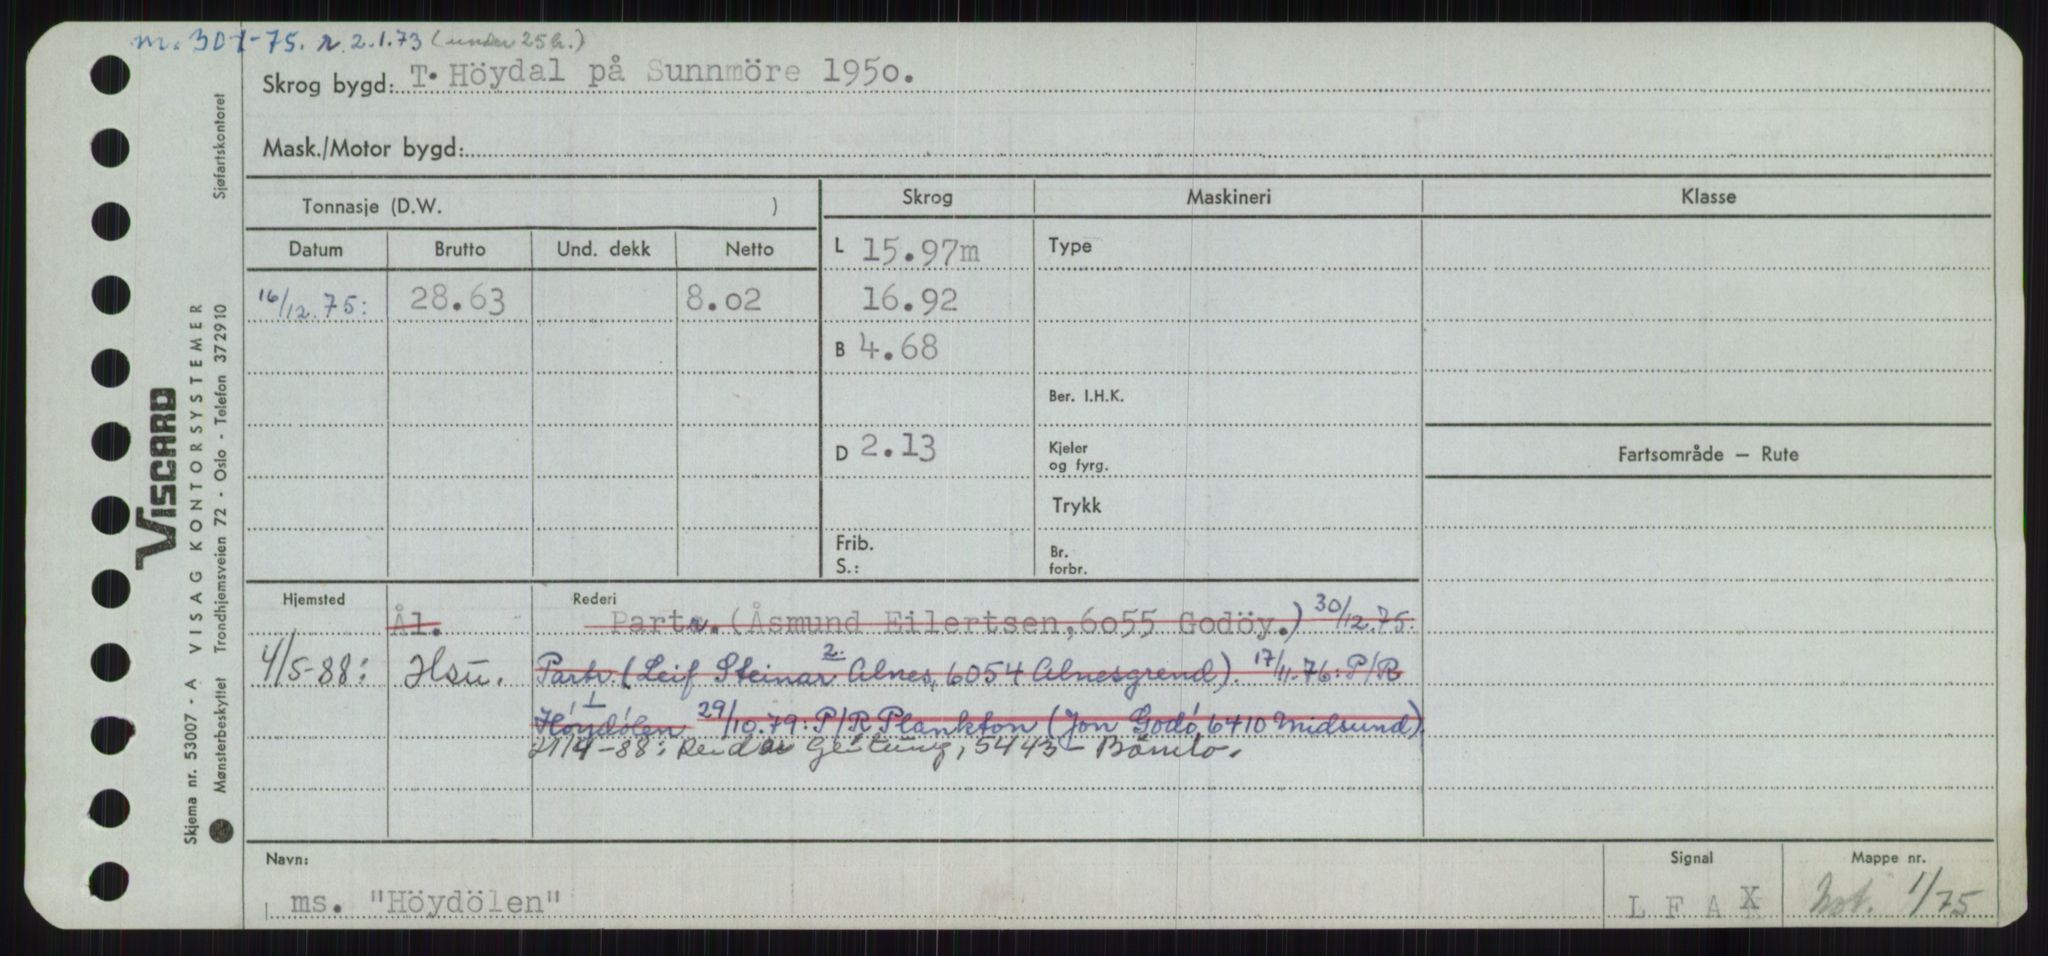 m. 301-75. r. 2.1.73 (under 25 br.)
Skrog bygd: T. Höydal på Sunnmöre 1950.
Mask./Motor bygd:
Tonnasje (D.W. )
Skrog
Maskineri
Klasse
Datum
Brutto
Und. dekk
Netto
L 15.97m
Type
16/12.75:
28.63
8.02
16.92
B 4.68
Ber. I.H.K.
D 2.13
Kjeler
og fyrg.
Fartsområde – Rute
Trykk
Frib.
S.:
Br.
forbr.
Hjemsted
Rederi
Ål.
Partr. (Åsmund Eilertsen, 6055 Godöy.) 30/12.75:
4/5-88: Hsu.
Partr. (Leif Steinar 2. Alnes, 6054 Alnesgrend). 17/11.76: P/R
Höydölen 29/10.79: P/R Plankton (Jon Godö, 6410 Midsund)
21/4-88: Reidar 5443 - Bömlo.
Navn:
ms. "Höydölen"
Signal
L F A X
Mappe nr.
Not. 1/75
VISCARD
VISAG KONTORSYSTEMER
Skjema nr. 53007 - A
Mønsterbeskyttet
Trondhjemsveien 72 - Oslo - Telefon 372910
Sjøfartskontoret